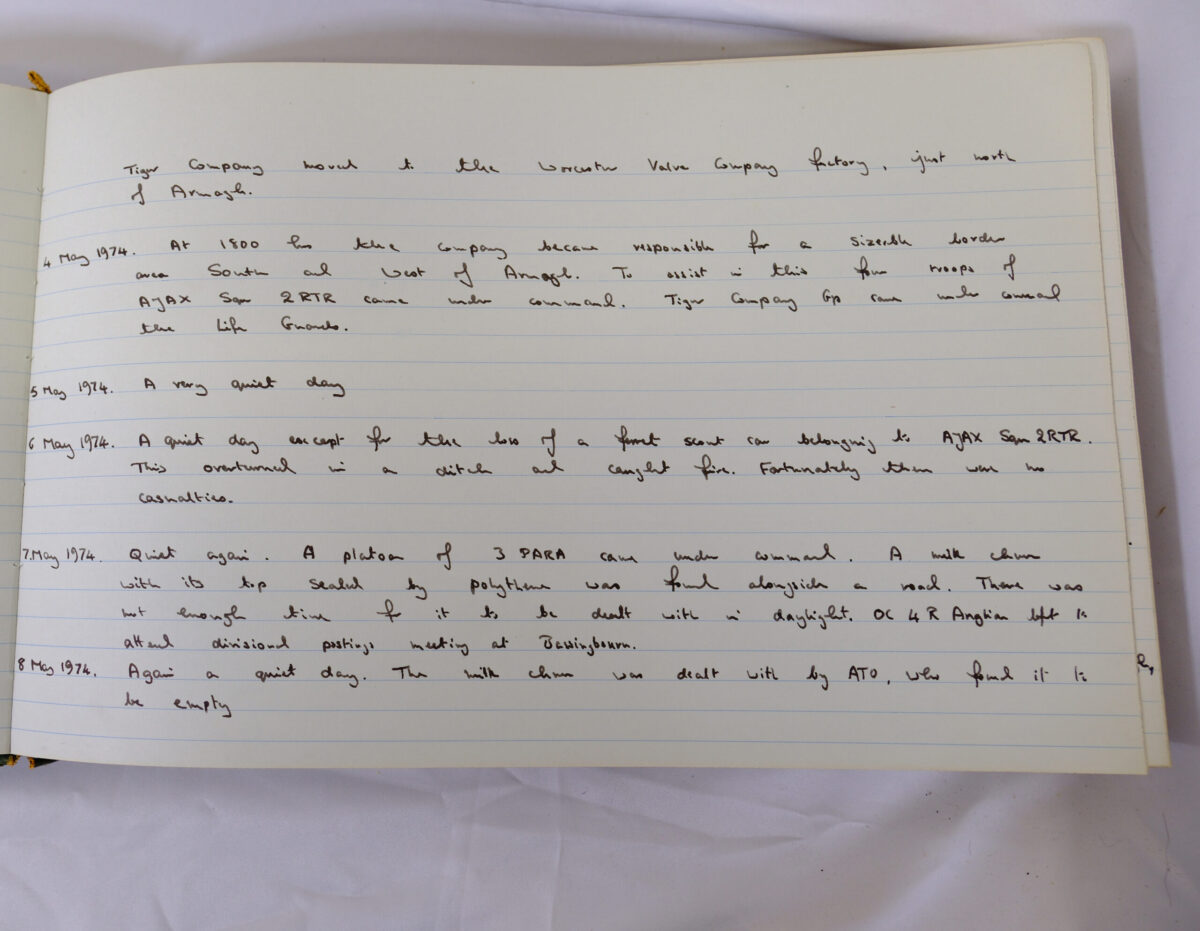 Tiger Company moved to the Worcester Valve Company factory, just north
of Armagh.
4 May 1974. At 1800 hrs the company became responsible for a sizeable border
area South and West of Armagh. To assist in this four troops of
AJAX Sqn 2RTR came under command. Tiger Company Gp came under command
the Life Guards.
5 May 1974. A very quiet day
6 May 1974. A quiet day except for the loss of a ferret scout car belonging to AJAX Sqn 2RTR.
This overturned in a ditch and caught fire. Fortunately there were no
casualties.
7 May 1974. Quiet again. A platoon of 3 PARA came under command. A milk churn
with its top sealed by polythene was found alongside a road. There was
not enough time for it to be dealt with in daylight. OC 4 R Anglian left to
attend divisional postings meeting at Bassingbourn.
8 May 1974. Again a quiet day. The milk churn was dealt with by ATO, who found it to
be empty